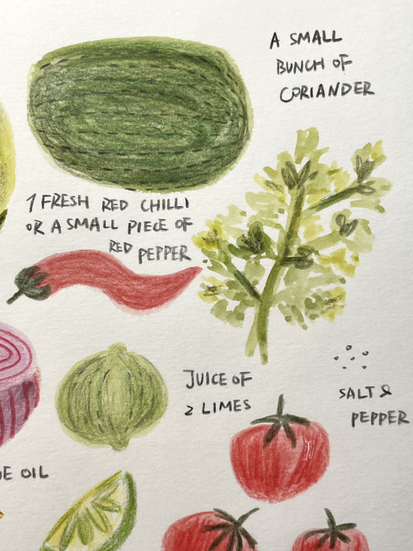 A SMALL
BUNCH OF
CORIANDER
1 FRESH RED CHILLI
OR A SMALL PIECE OF
RED PEPPER
JUICE OF
2 LIMES
SALT &
PEPPER
OIL